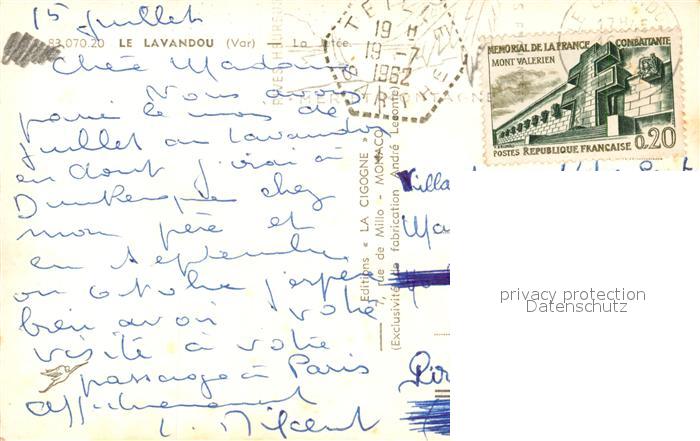 15 juillet
83.070.20 LE LAVANDOU (Var) La Jetée
Chère Madame
Nous avons
pour le mois de
juillet au Lavandou
en Août j'irai à
Dunkerque chez
mon père et
en septembre
ou octobre j'espère
bien avoir votre
visite à votre
passage à Paris
affectueusement
Editions « LA CIGOGNE »
7, rue de Millo - MONACO
(Exclusivité de fabrication André Leconte)
19 H
19 - 7
1962
VAR
MEMORIAL DE LA FRANCE COMBATTANTE
MONT VALERIEN
POSTES REPUBLIQUE FRANÇAISE 0,20
Villa
privacy protection
Datenschutz